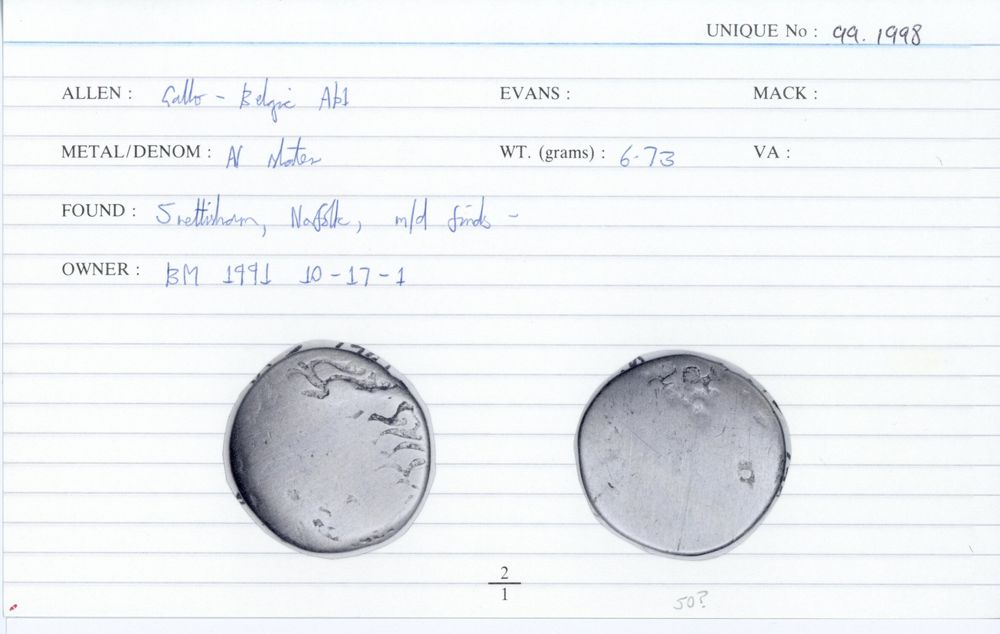 UNIQUE No : 99.1998
ALLEN : Gallo - Belgic Ab1 EVANS : MACK :
METAL/DENOM : AV Stater WT. (grams) : 6.73 VA :
FOUND : Snettisham, Norfolk, m/d finds -
OWNER : BM 1991 10-17-1
2
1
50?